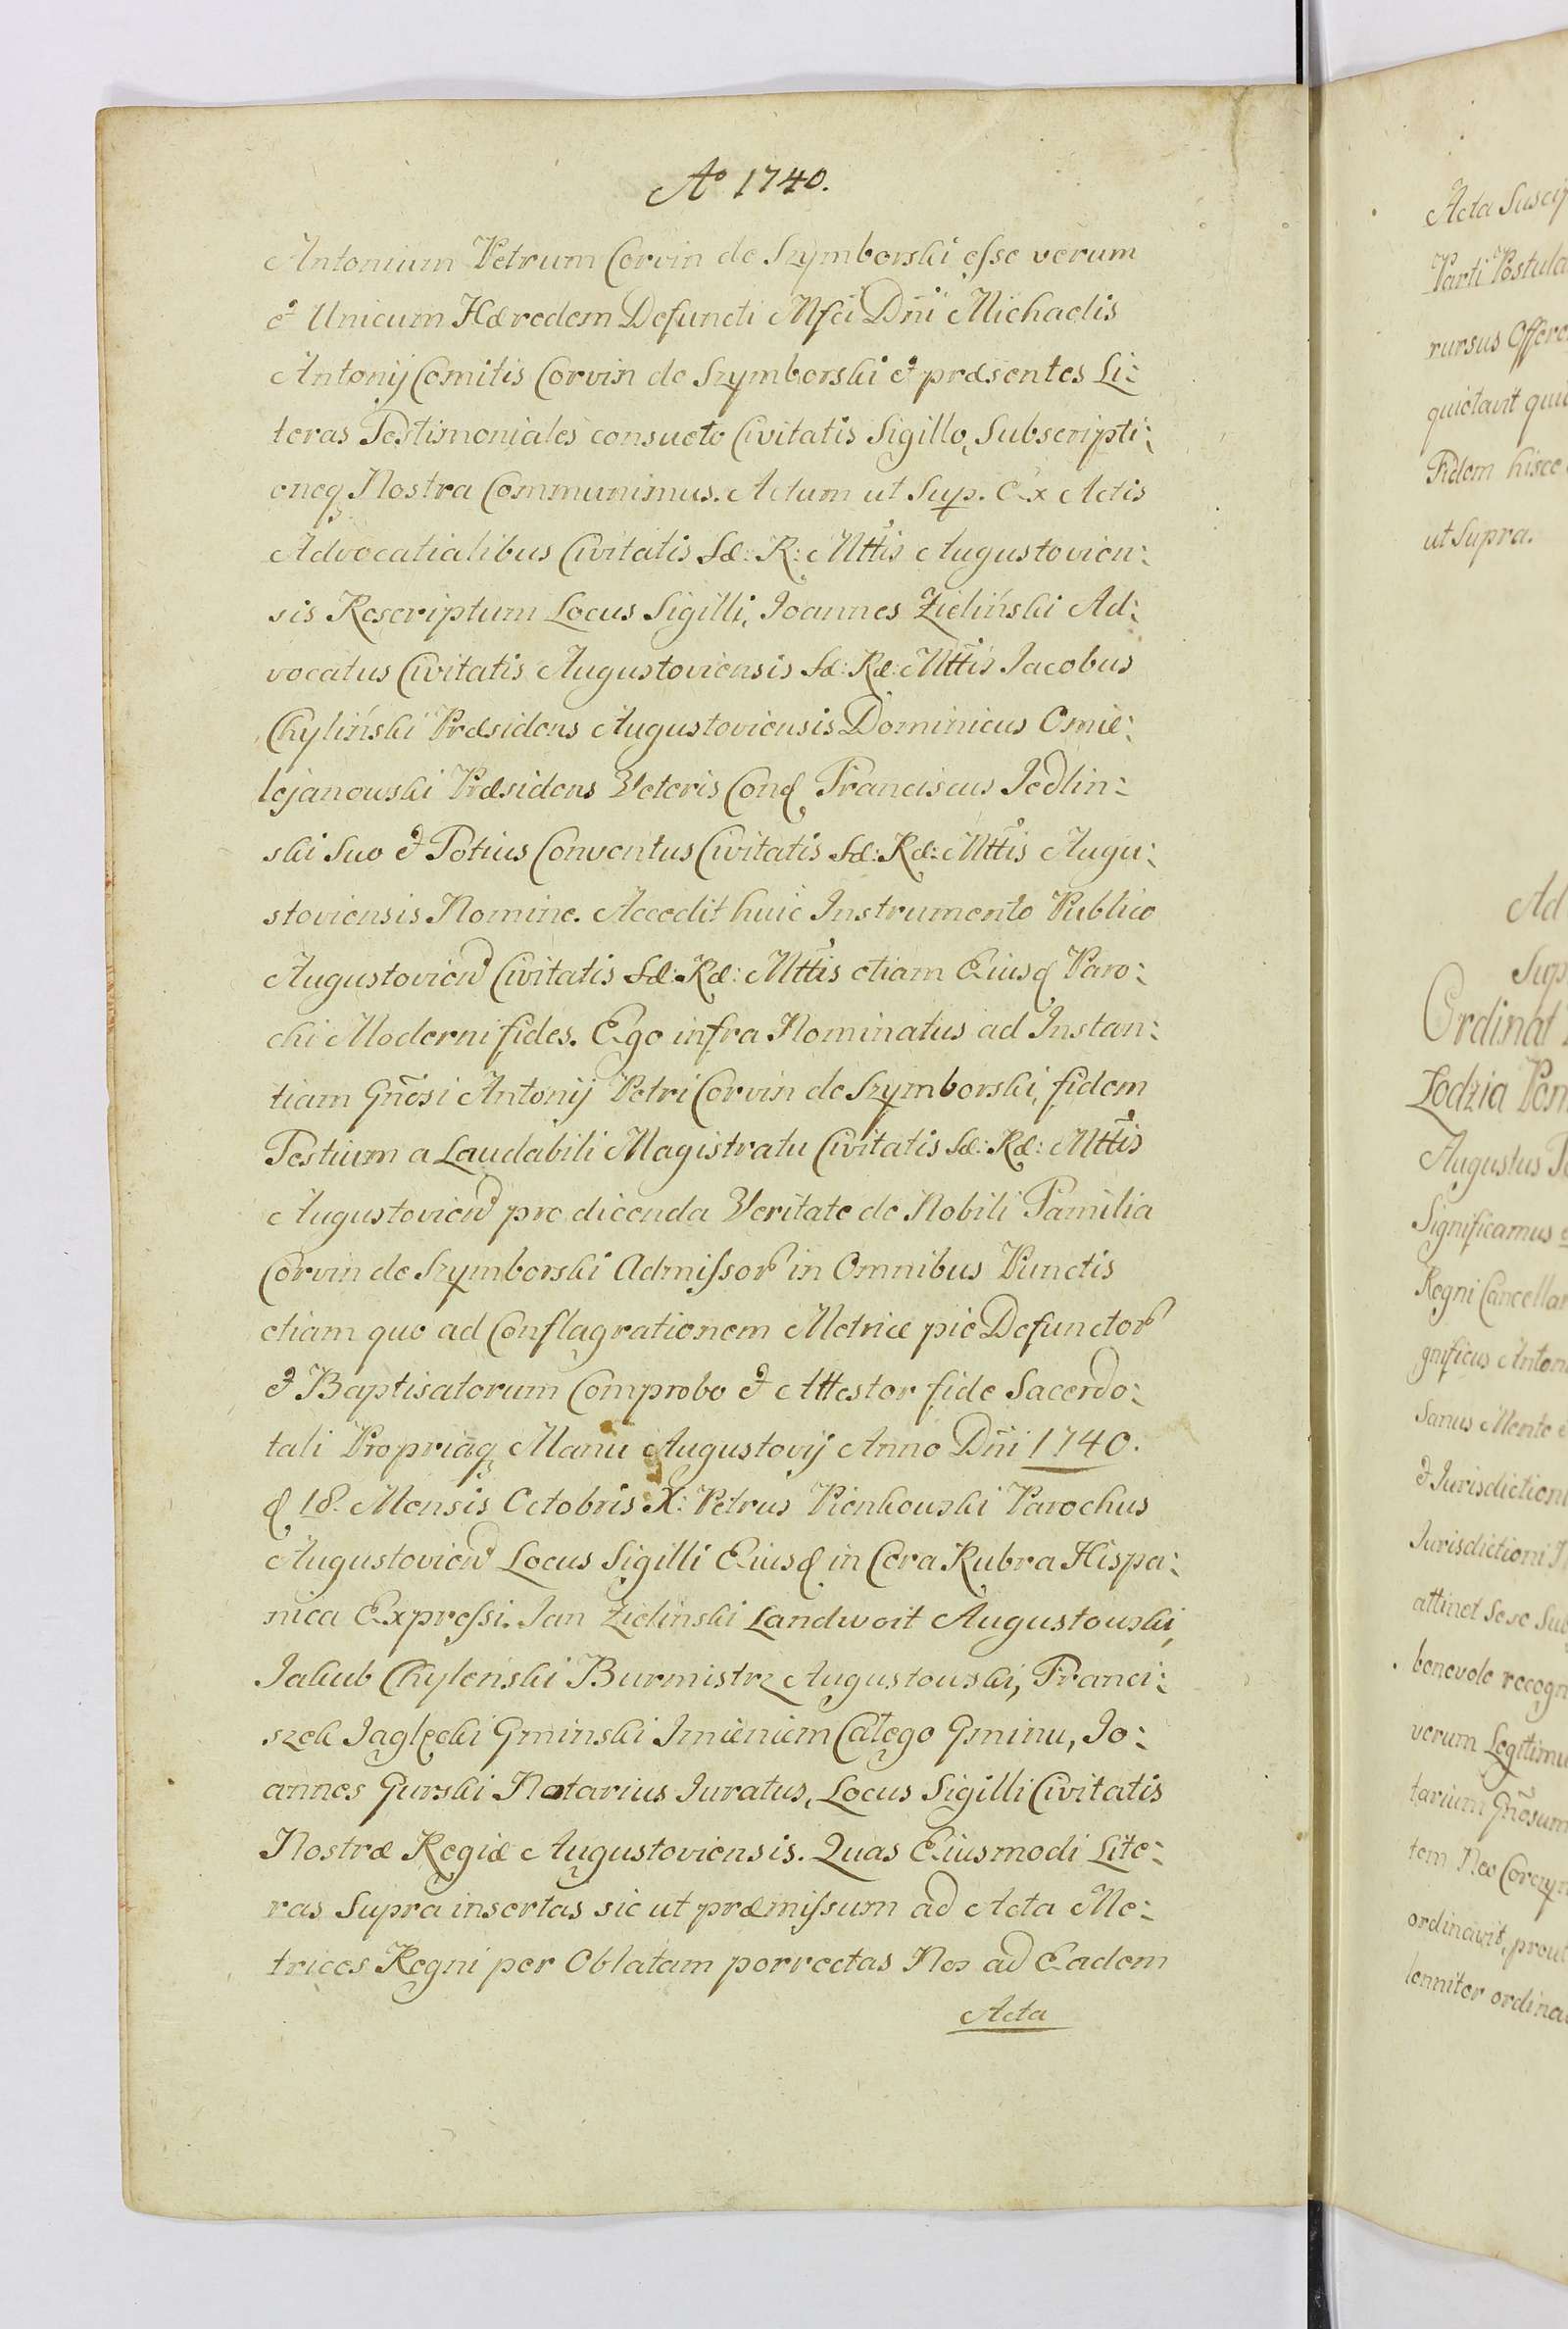 Ao 1740.
Antonium Petrum Corvin de Szymborski esse verum
et Unicum Hæredem Defuncti Mfci Dñi Michaelis
Antonij Comitis Corvin de Szymborski et præsentes Li:
teras Testimoniales consueto Civitatis Sigillo, Subscripti:
oneq Nostra Communimus. Actum ut Sup. Ex Actis
Advocatialibus Civitatis Sæ: R: Mttis Augustovien:
sis Rescriptum Locus Sigilli, Joannes Zieliński Ad:
vocatus Civitatis Augustoviensis Sæ: Ræ: Mttis Jacobus
Chyliński Præsidens Augustoviensis Dominicus Omie:
lejanowski Præsidens Veteris Cond Franciscus Jedlin:
ski Suo et Totius Conventus Civitatis Sæ: Ræ: Mttis Augu:
stoviensis Nomine. Accedit huic Instrumento Publico
Augustovien Civitatis Sæ: Ræ: Mttis etiam Eiusd Paro:
chi Moderni fides. Ego infra Nominatus ad Instan:
tiam Gñosi Antonij Petri Corvin de Szymborski, fidem
Testium a Laudabili Magistratu Civitatis Sæ: Ræ: Mttis
Augustovien pro dicenda Veritate de Nobili Familia
Corvin de Szymborski Admissor in Omnibus Punctis
etiam quo ad Conflagrationem Metricæ pie Defunctor
et Baptisatorum Comprobo et Attestor fide Sacerdo:
tali Propriaq Manu Augustovij Anno Dñi 1740.
d 18. Mensis Octobris X: Petrus Pienkowski Parochus
Augustovien Locus Sigilli Eiusd in Cera Rubra Hispa:
nica Expressi. Jan Zielinski Landwoit Augustowski,
Jakub Chylenski Burmistrz Augustowski, Franci:
szek Jaglecki Gminski Imieniem Całego Gminu, Jo:
annes Gurski Notarius Juratus, Locus Sigilli Civitatis
Nostræ Regiæ Augustoviensis. Quas Eiusmodi Lite:
ras Supra insertas sic ut præmissum ad Acta Me:
trices Regni per Oblatam porrectas Nos ad Eadem
Acta
Acta
Parti
rursus
quietavit
Fidem hisce
ut Supra.
Ad
Ordinat
Lodzia
Augustus
Significamus
Regni
Sanus Mente
et
Jurisdictioni
attinet sese
benevole
verum
tem Neo
ordinavit, prout